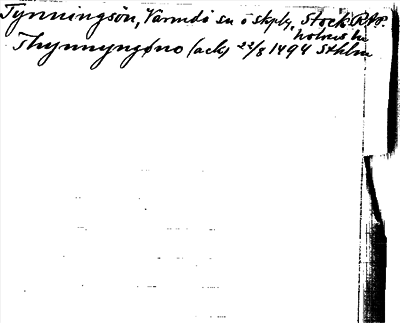 Tynningsön, Värmdö sn o skplg, Stock- RAp.
holms län
Thynnyngøno (ack) 22/8 1494 Sthlm